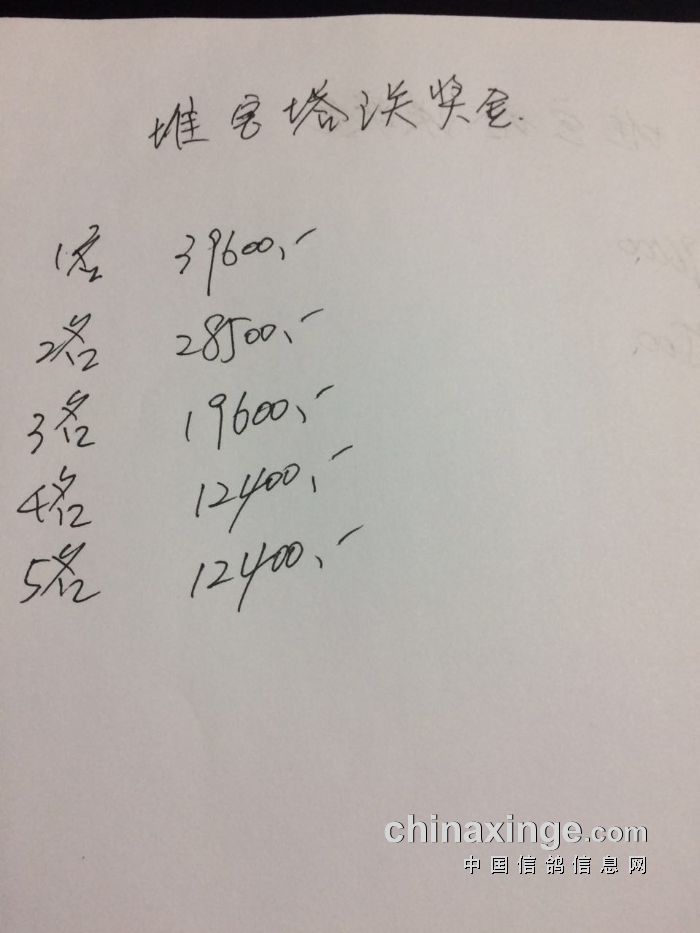 堆宝塔决奖金.
1名 39600,-
2名 28500,-
3名 19600,-
4名 12400,-
5名 12400,-
chinaxinge.com
中国信鸽信息网